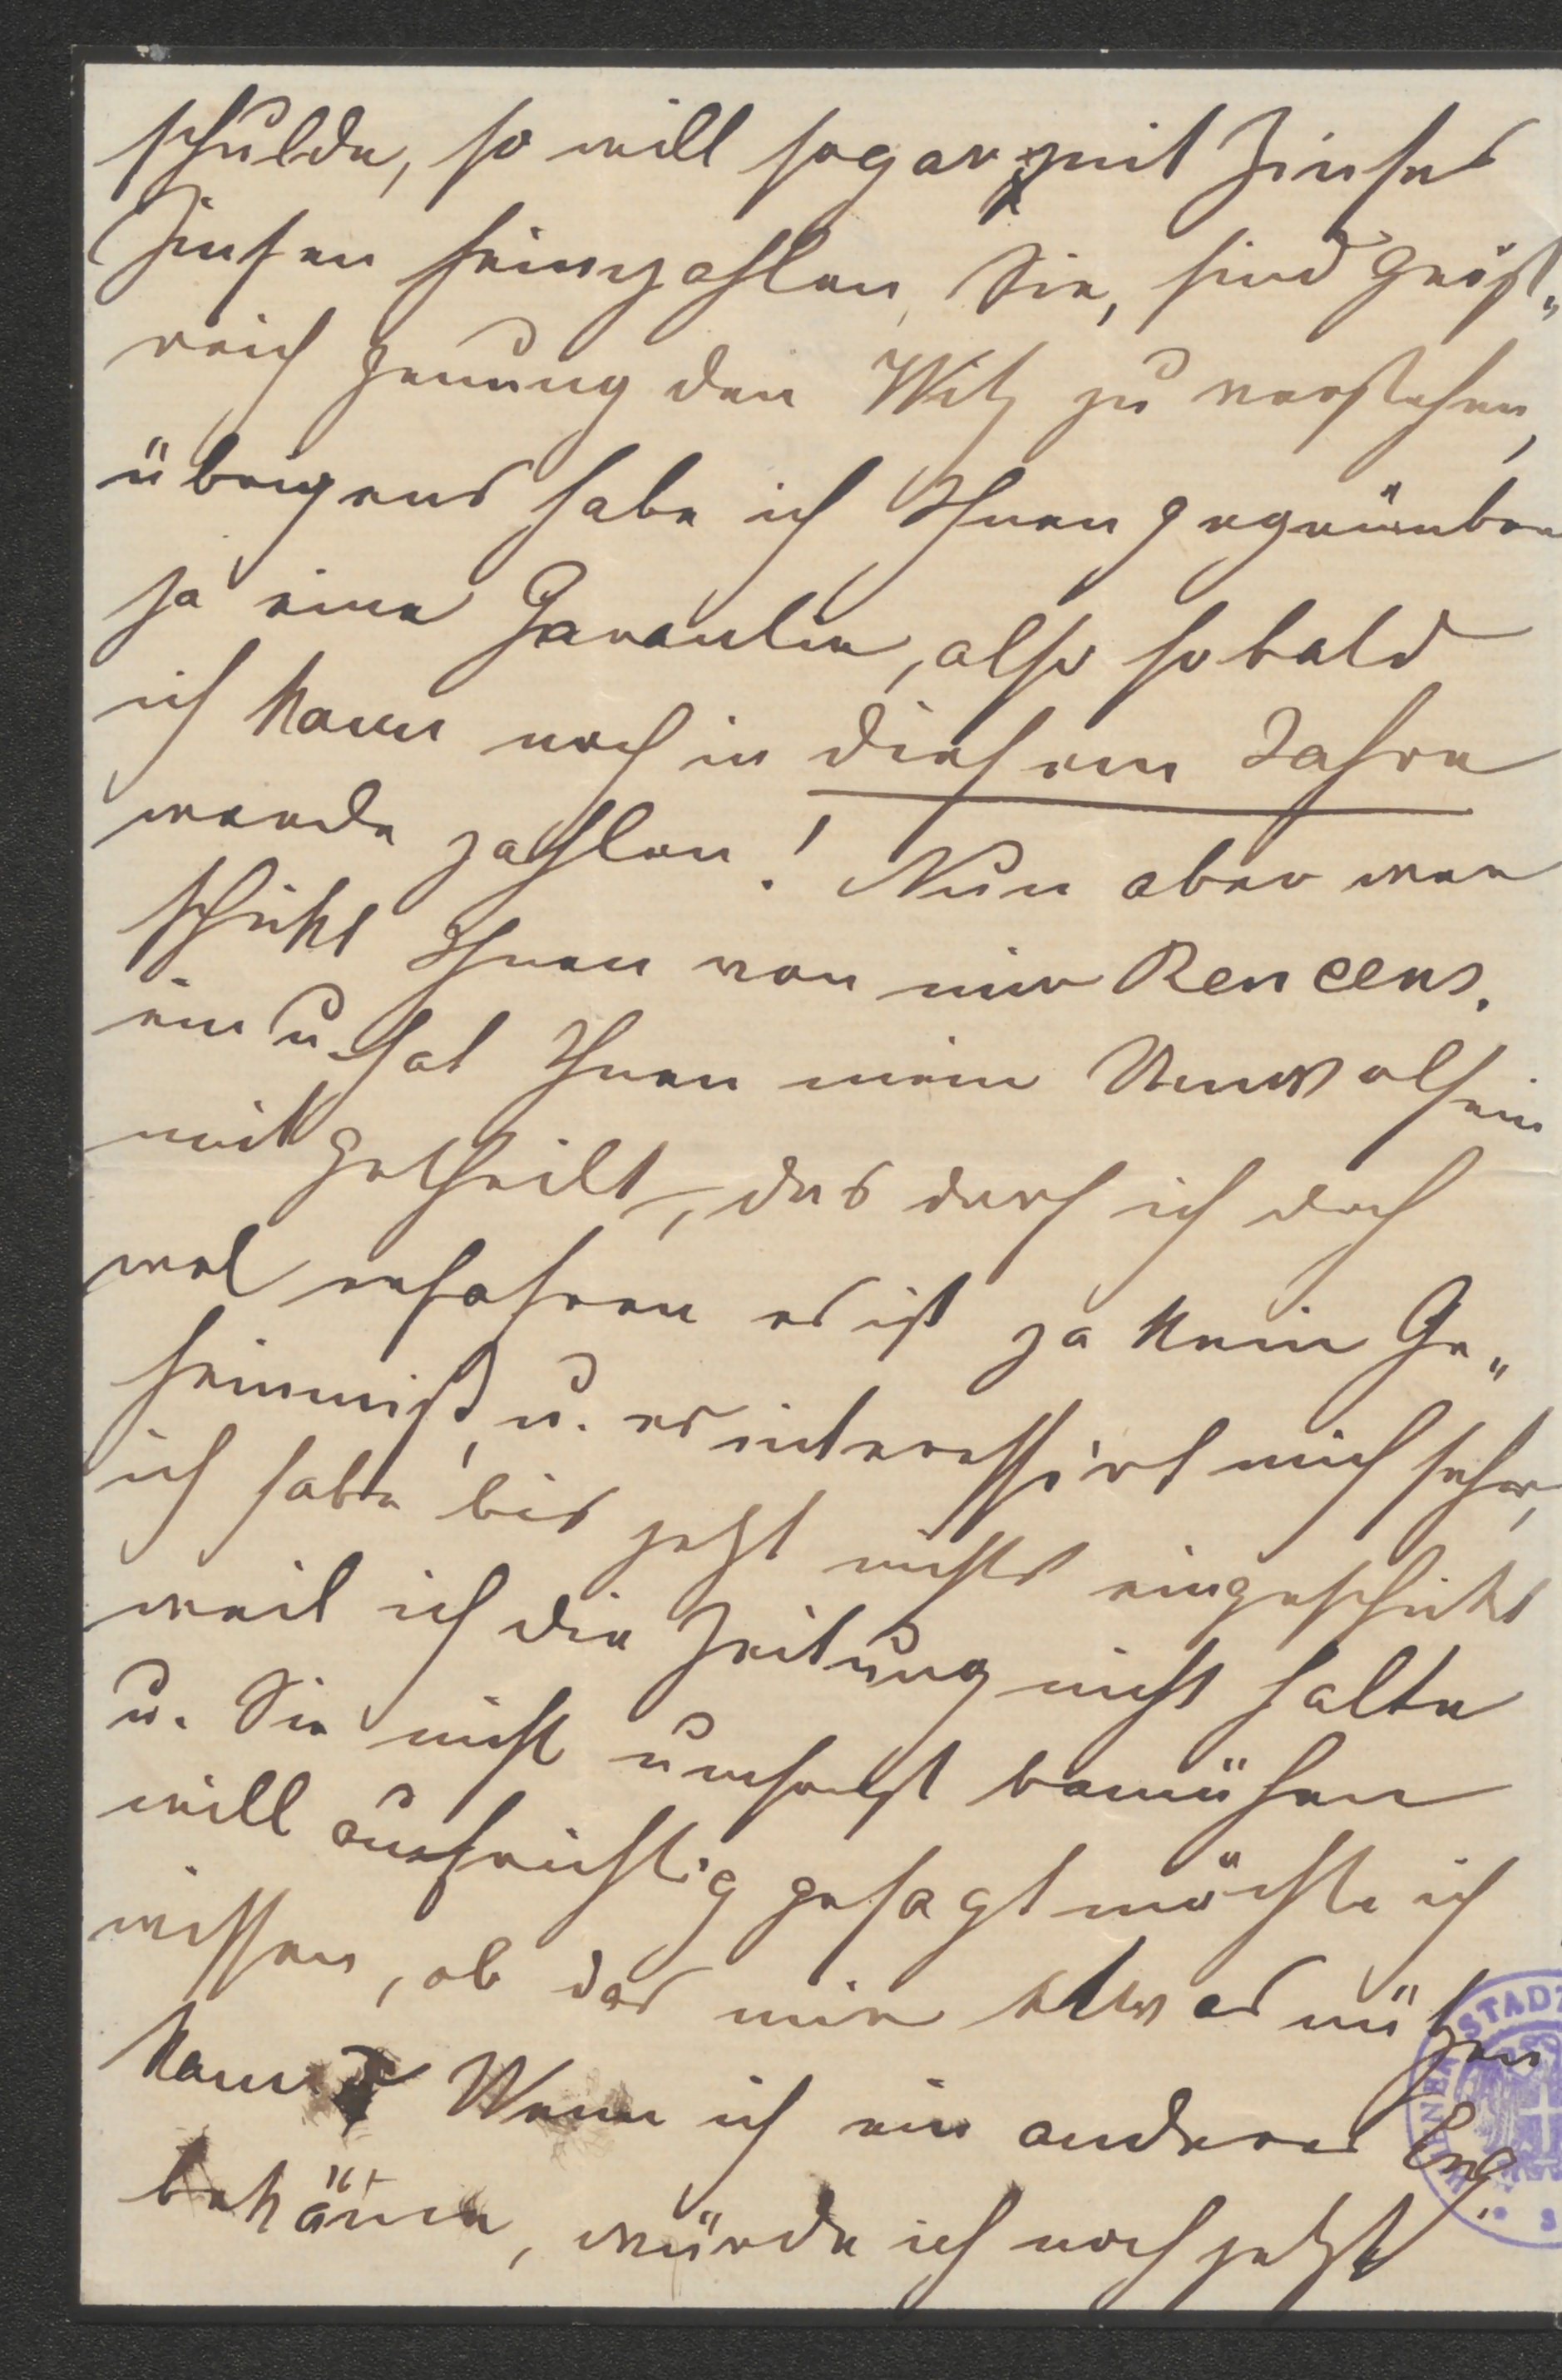 schulde, so will sogar mit Zinses
Zinsen heimzahlen, Sie, sind geist„
reich genung den Witz zu verstehen,
übrigens habe ich Ihnen gegenüber
ja eine Garantie, also sobald
ich kann noch in diesem Jahre
werde zahlen! Nun aber wer
schikt Ihnen von mir Rencens.
ein u. hat Ihnen mein Unwolsein
mitgetheilt, das darf ich doch
wol erfahren es ist ja kein Ge„
heimniß, u. es interessirt mich sehr,
ich habe bis jetzt nichts eingeschikt
weil ich die Zeitung nicht halte
u. Sie nicht umsonst bemühen
will aufrichtig gesagt möchte ich
wissen, ob das mir etwas nützen
kann? Wenn ich ein anderes Eng.
bekäme, würde ich noch jetzt
STADT